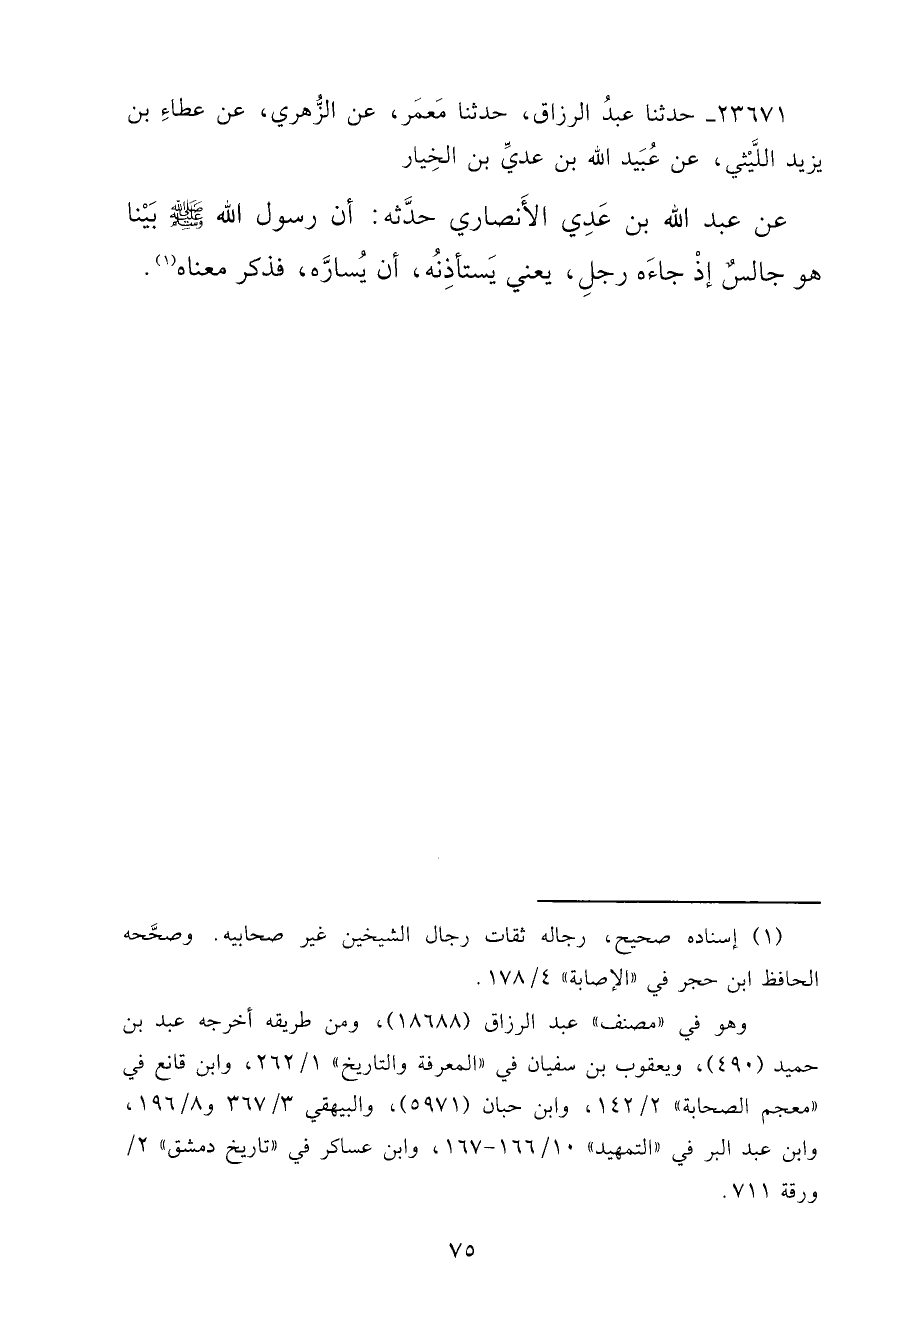 ٢٣٦٧١ـ حدثنا عبدُ الرزاق، حدثنا مَعمَر، عن الزُّهري، عن عطاءِ بن
يزيد اللَّيْثي، عن عُبَيد الله بن عديِّ بن الخِيار
عن عبد الله بن عَدِي الأَنصاري حدَّثه: أن رسول الله ﷺ بَيْنا
هو جالسٌ إذْ جاءَه رجلٍ، يعني يَستأذِنُه، أن يُسارَّه، فذكر معناه(١).
(١) إسناده صحيح، رجاله ثقات رجال الشيخين غير صحابيه. وصحَّحه
الحافظ ابن حجر في «الإصابة» ١٧٨/٤.
وهو في «مصنف» عبد الرزاق (١٨٦٨٨)، ومن طريقه أخرجه عبد بن
حميد (٤٩٠)، ويعقوب بن سفيان في «المعرفة والتاريخ» ٢٦٢/١، وابن قانع في
«معجم الصحابة» ١٤٢/٢، وابن حبان (٥٩٧١)، والبيهقي ٣٦٧/٣ و١٩٦/٨،
وابن عبد البر في «التمهيد» ١٦٦/١٠-١٦٧، وابن عساكر في «تاريخ دمشق» ٢/
ورقة ٧١١.
٧٥